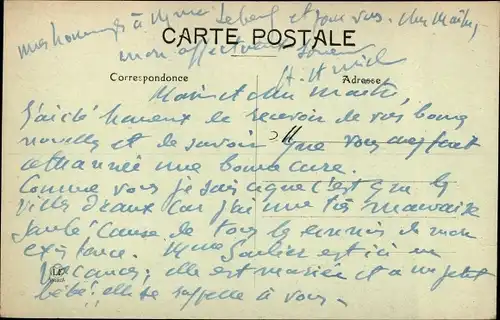 mes hommages à Mme Lebeuf et pour vos. cher Maître,
CARTE POSTALE
mon affectueux
Correspondance
Adresse
cher maître,
J'ai été heureux de recevoir de vos bonnes
nouvelles et de savoir que vous avez fait
cette année une bonne cure.
Comme vous je sais ce que c'est que les
villes d'eaux car j'ai une très mauvaise
santé cause de tous les ennuis de mon
existence. Mme est ici en
vacances, elle est mariée et a un petit
bébé! elle se rappelle à vous.